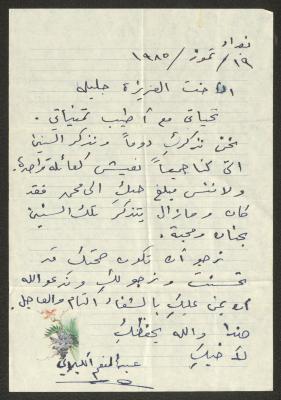 بغداد
١٩ / تموز / ١٩٨٥
الاخت العزيزة جليله
تحياتي مع أطيب تمنياتي .
نحن نذكرك دوماً ونذكر السنين
التي كنا جميعاً نعيش كعائلة واحدة
ولا ننسى مبلغ حبك الى محمد فقد
كان وما زال يتذكر تلك السنين
بحنان ومحبة .
نرجو أن تكون صحتك قد
تحسنت ونرجو لك وندعو الله
أن يمن عليك بالشفاء التام والعاجل .
هذا والله يحفظك
لأخيك
عبد المنعم